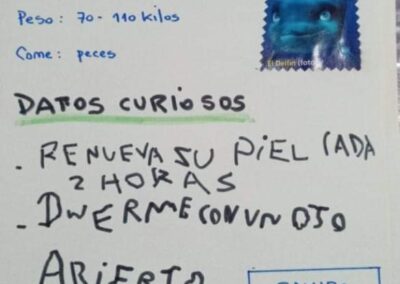 Peso: 70-110 kilos
El Delfín (foto
Come: peces
DATOS CURIOSOS
- RENUEVA SU PIEL CADA
2 HORAS
- DWERME CON UN OJO
ABIERTO